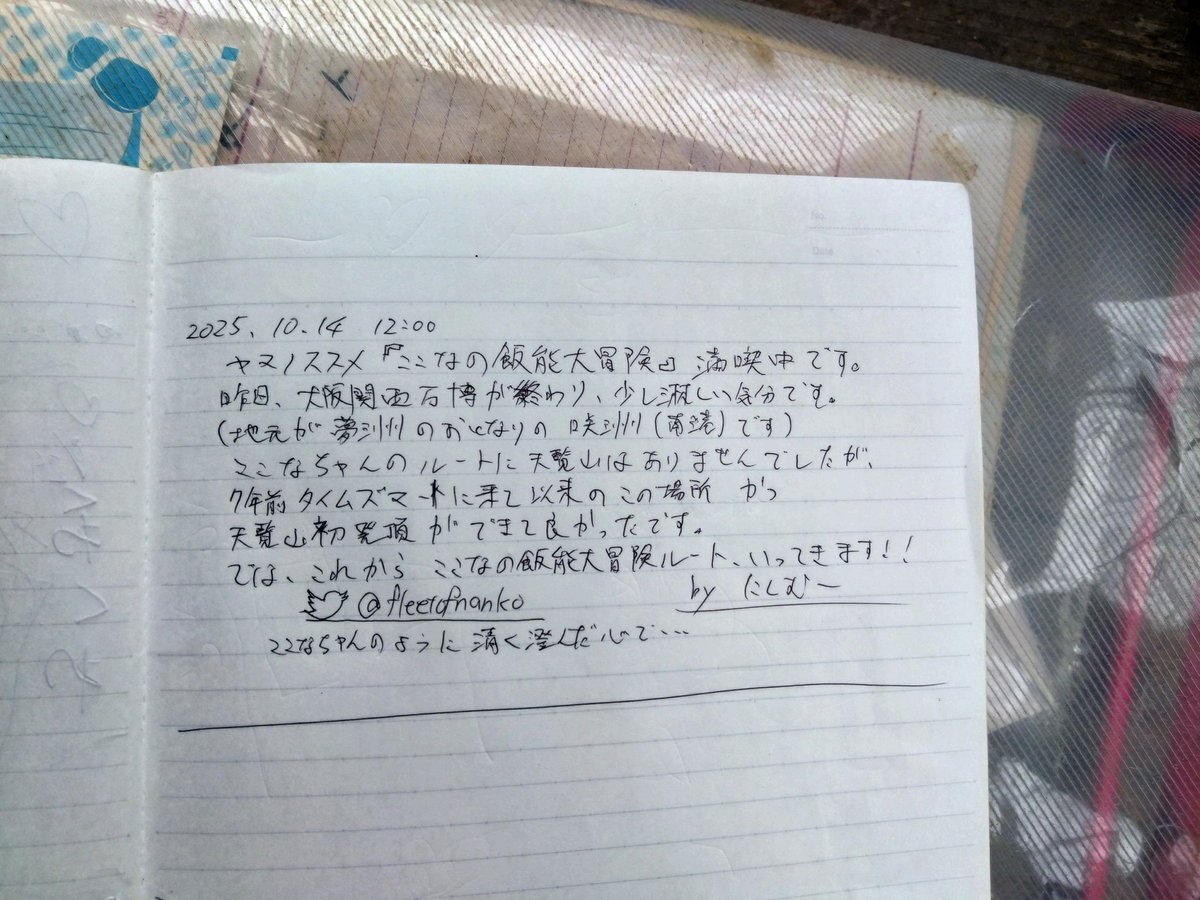 No.
Date
2025. 10. 14 12:00
ヤマノススメ『ここなの飯能大冒険』満喫中です。
昨日、大阪関西万博が終わり、少し淋しい気分です。
(地元が夢洲のおとなりの咲洲(南港)です)
ここなちゃんのルートに天覧山はありませんでしたが、
7年前タイムズマートに来て以来のこの場所 かつ
天覧山初登頂ができて良かったです。
では、これから ここなの飯能大冒険ルート、いってきます!!
@fleetofnanko by にしむー
ここなちゃんのように清く澄んだ心で…